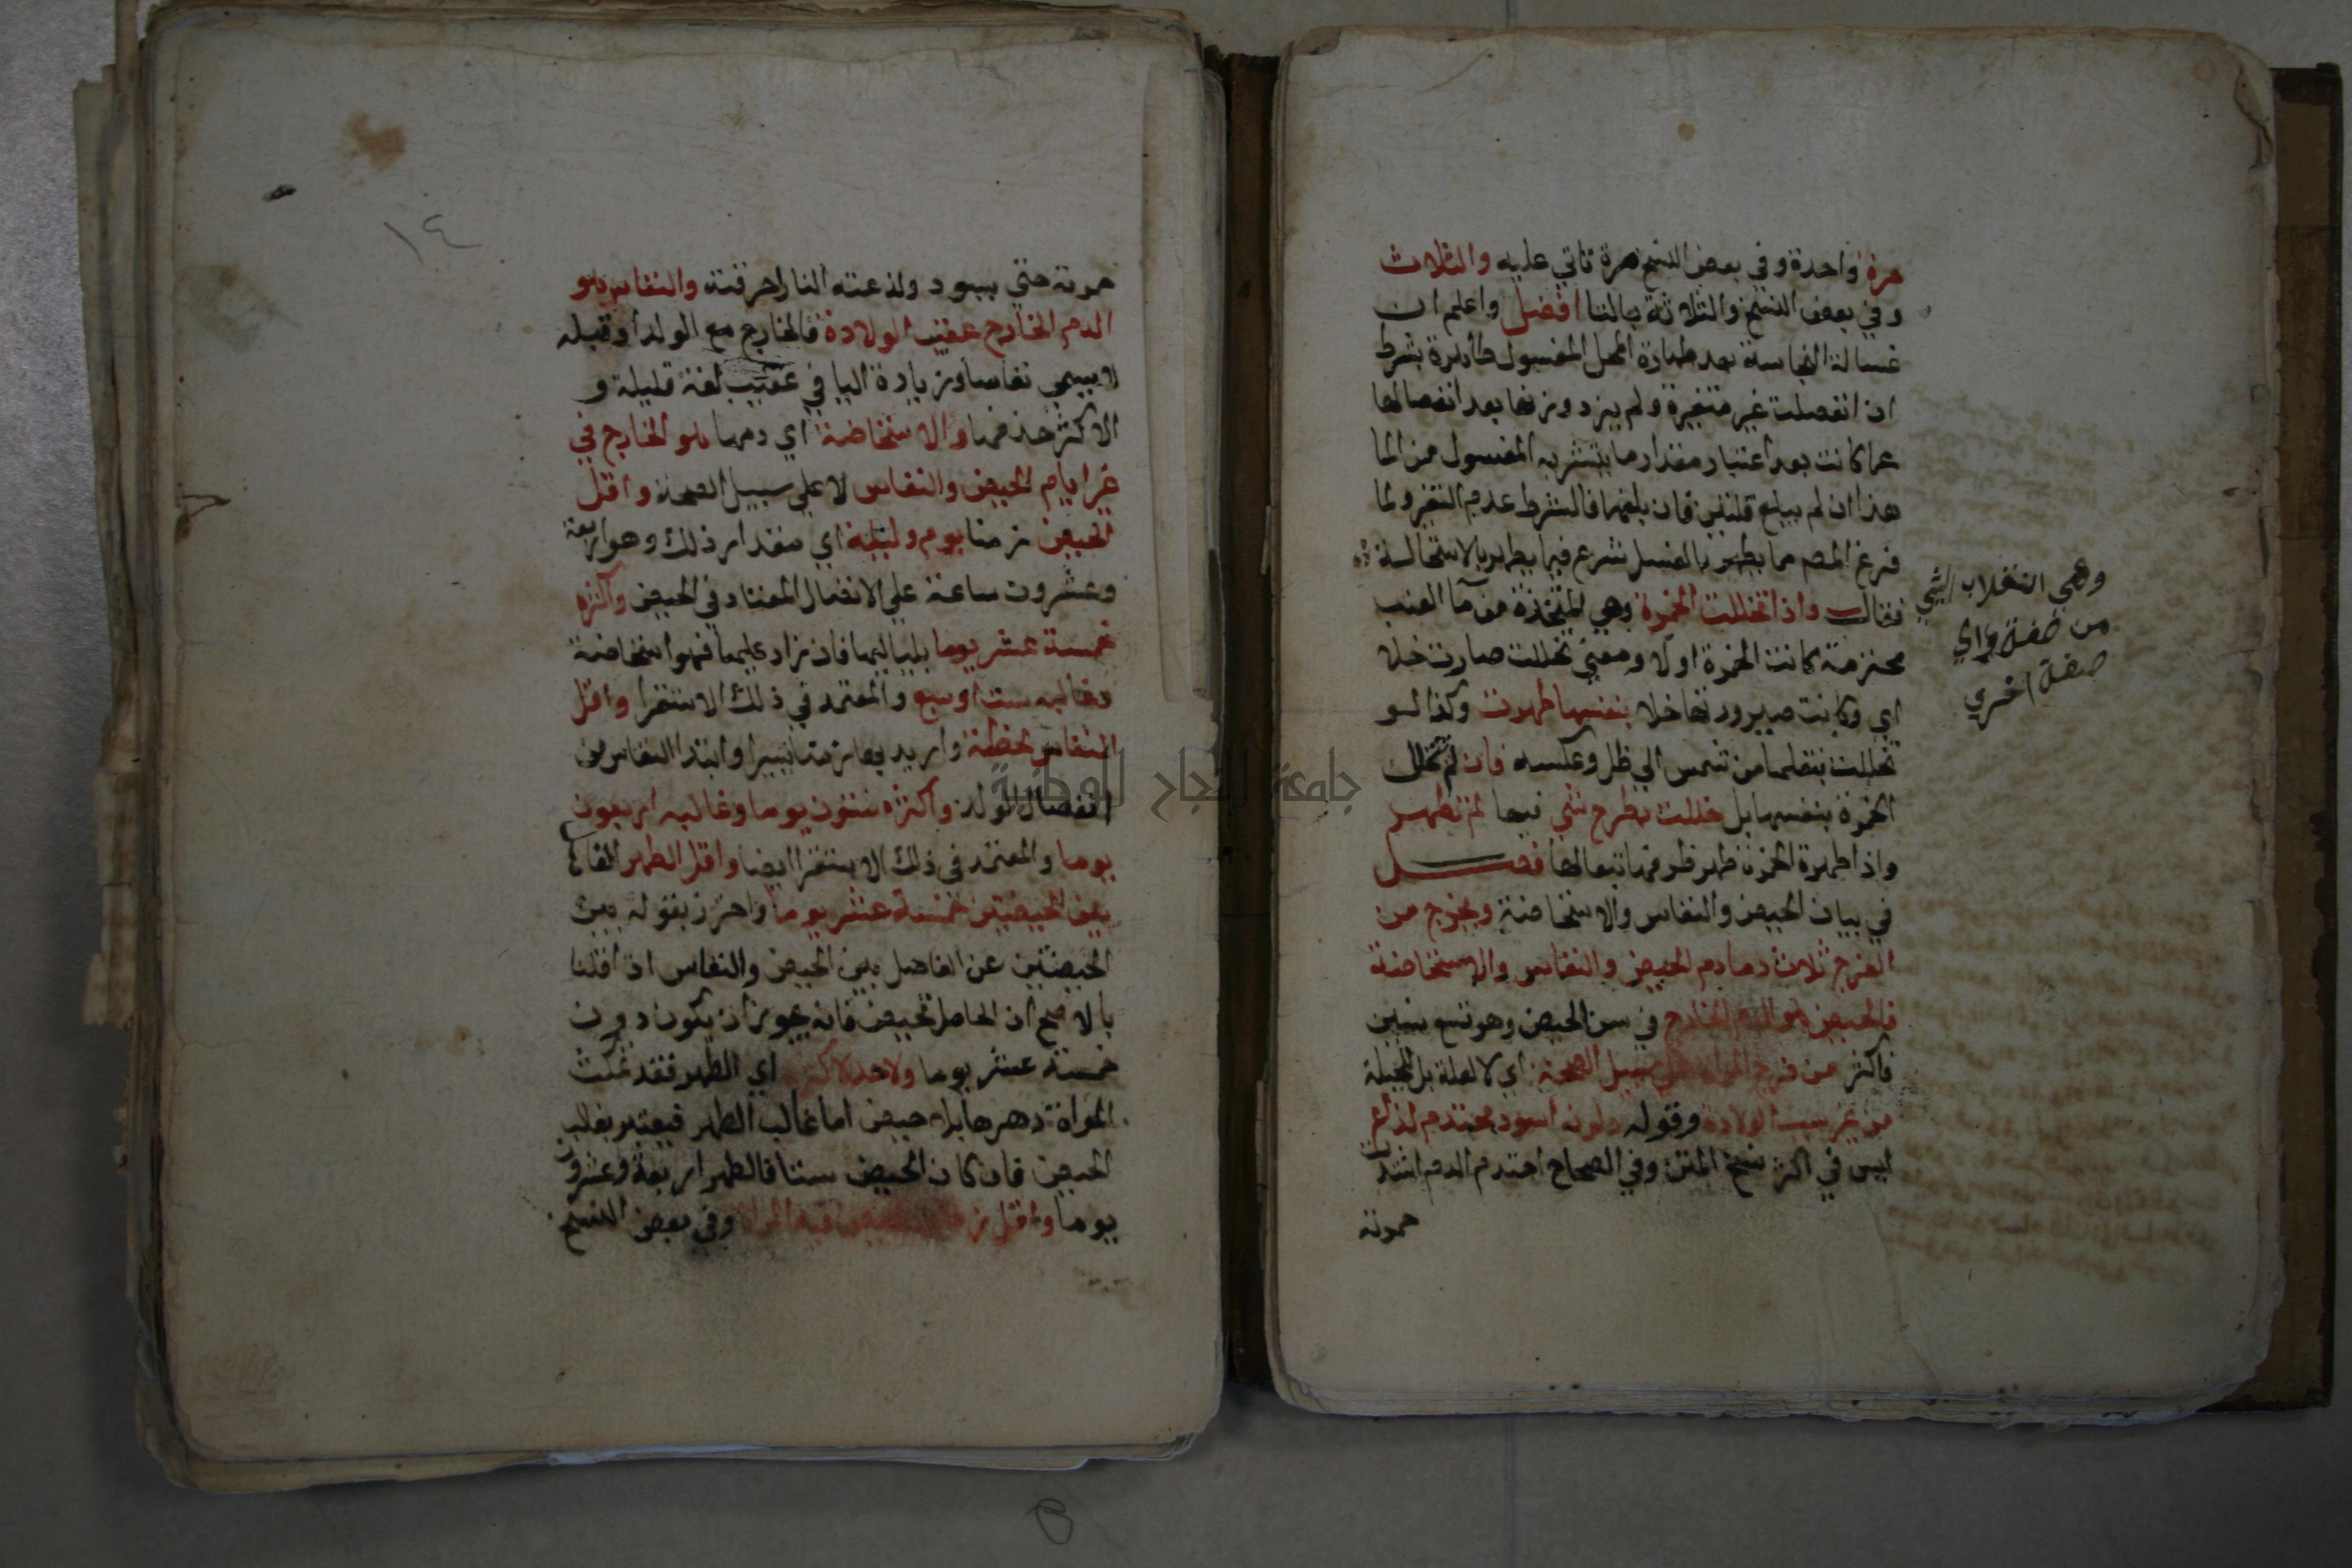 مرة واحدة وفي بعض النسخ مرة تاتي عليه والثلاث
وفي بعض النسخ والثلاثة بالتا افضل واعلم ان
غسالة النجاسة بعد طهارة المحل المغسول طاهرة بشرط
ان انفصلت غير متغيرة ولم يزد وزنها بعد انفصالها
عما كانت بعد اعتبار مقدار ما يتشربه المغسول من الما
هذا ان لم يبلغ قلتين فان بلغهما فالشرط عدم التغير ولما
فرغ المصم مما يطهر بالغسل شرع فيما يطهر بالاستحالة
وهي انقلاب الشي
من صفة الي
صفة اخري
فقال واذا تخللت الخمرة وهي المتخذة من مآ العنب
محترمة كانت الخمرة اولا ومعني تخللت صارت خلا
اي وكانت صيرورتها خلا بنفسها طهرت وكذا لو
تخللت بنقلها من شمس الي ظل وعكسه فان لم تخلل
الخمرة بنفسها بل خللت بطرح شي فيها لم تطهر
واذا طهرة الخمرة طهر ظرفها تبعا لها فصل
في بيان الحيض والنفاس والاستحاضة ويخرج من
الفرج ثلاث دما دم الحيض والنفاس والاستحاضة
فالحيض هو الدم الخارج في سن الحيض وهو تسع سنين
فاكثر من فرج المراة علي سبيل الصحة اي لا لعلة بل للجبلة
من غير سبب الولادة وقوله ولونه اسود محتدم لذاع
ليس في اكثر نسخ المتن وفي الصحاح احتدم الدم اشتدت
حمرته
١٤
حمرته حتي يسود ولذعته النار احرقته والنفاس هو
الدم الخارج عقيب الولادة فالخارج مع الولد او قبله
لا يسمي نفاسا وزيادة اليا في عقيب لغة قليلة و
الاكثر حذفها والاستحاضة اي دمها هو الخارج في
غير ايام الحيض والنفاس لا علي سبيل الصحة واقل
الحيض زمنا يوم وليلة اي مقدار ذلك وهو اربعة
وعشروت ساعة علي الاتصال المعتاد في الحيض واكثره
خمسة عشر يوما بلياليها فان زاد عليها فهو استحاضة
وغالبه ست او سبع والمعتمد في ذلك الاستقرا واقل
النفاس لحظة واريد بها زمتا يسيرا وابتدا النفاس من
انفصال الولد واكثره ستون يوما وغالبه اربعون
يوما والمعتمد في ذلك الاستقرا ايضا واقل الطهر الفاصل
بين الحيضتين خمسة عشر يوما واحترز بقوله بين
الحيضتين عن الفاصل بين الحيض والنفاس اذا قلنا
بالاصح ان الحامل تحيض فانه يجوز ان يكون دون
خمسة عشر يوما ولا حد لاكثره اي الطهر فقد تمكث
المراة دهرها بلا حيض اما غالب الطهر فيعتبر بغالب
الحيض فان كان الحيض ستا فالطهر اربعة وعشرون
يوما واقل تحيض فيه المراة وفي بعض النسخ
جامعة النجاح الوطنية